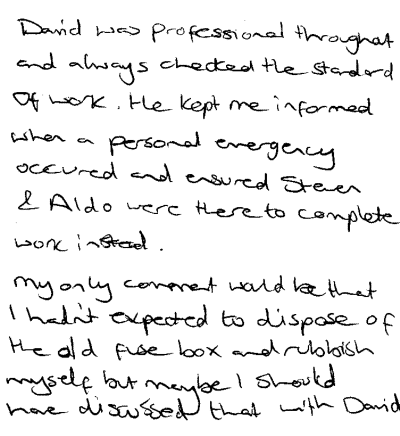 David was professional throughout
and always checked the standard
of work. He kept me informed
when a personal emergency
occured and ensured Steven
& Aldo were there to complete
work instead.
My only comment would be that
I hadn't expected to dispose of
the old fuse box and rubbish
myself but maybe I should
have discussed that with David